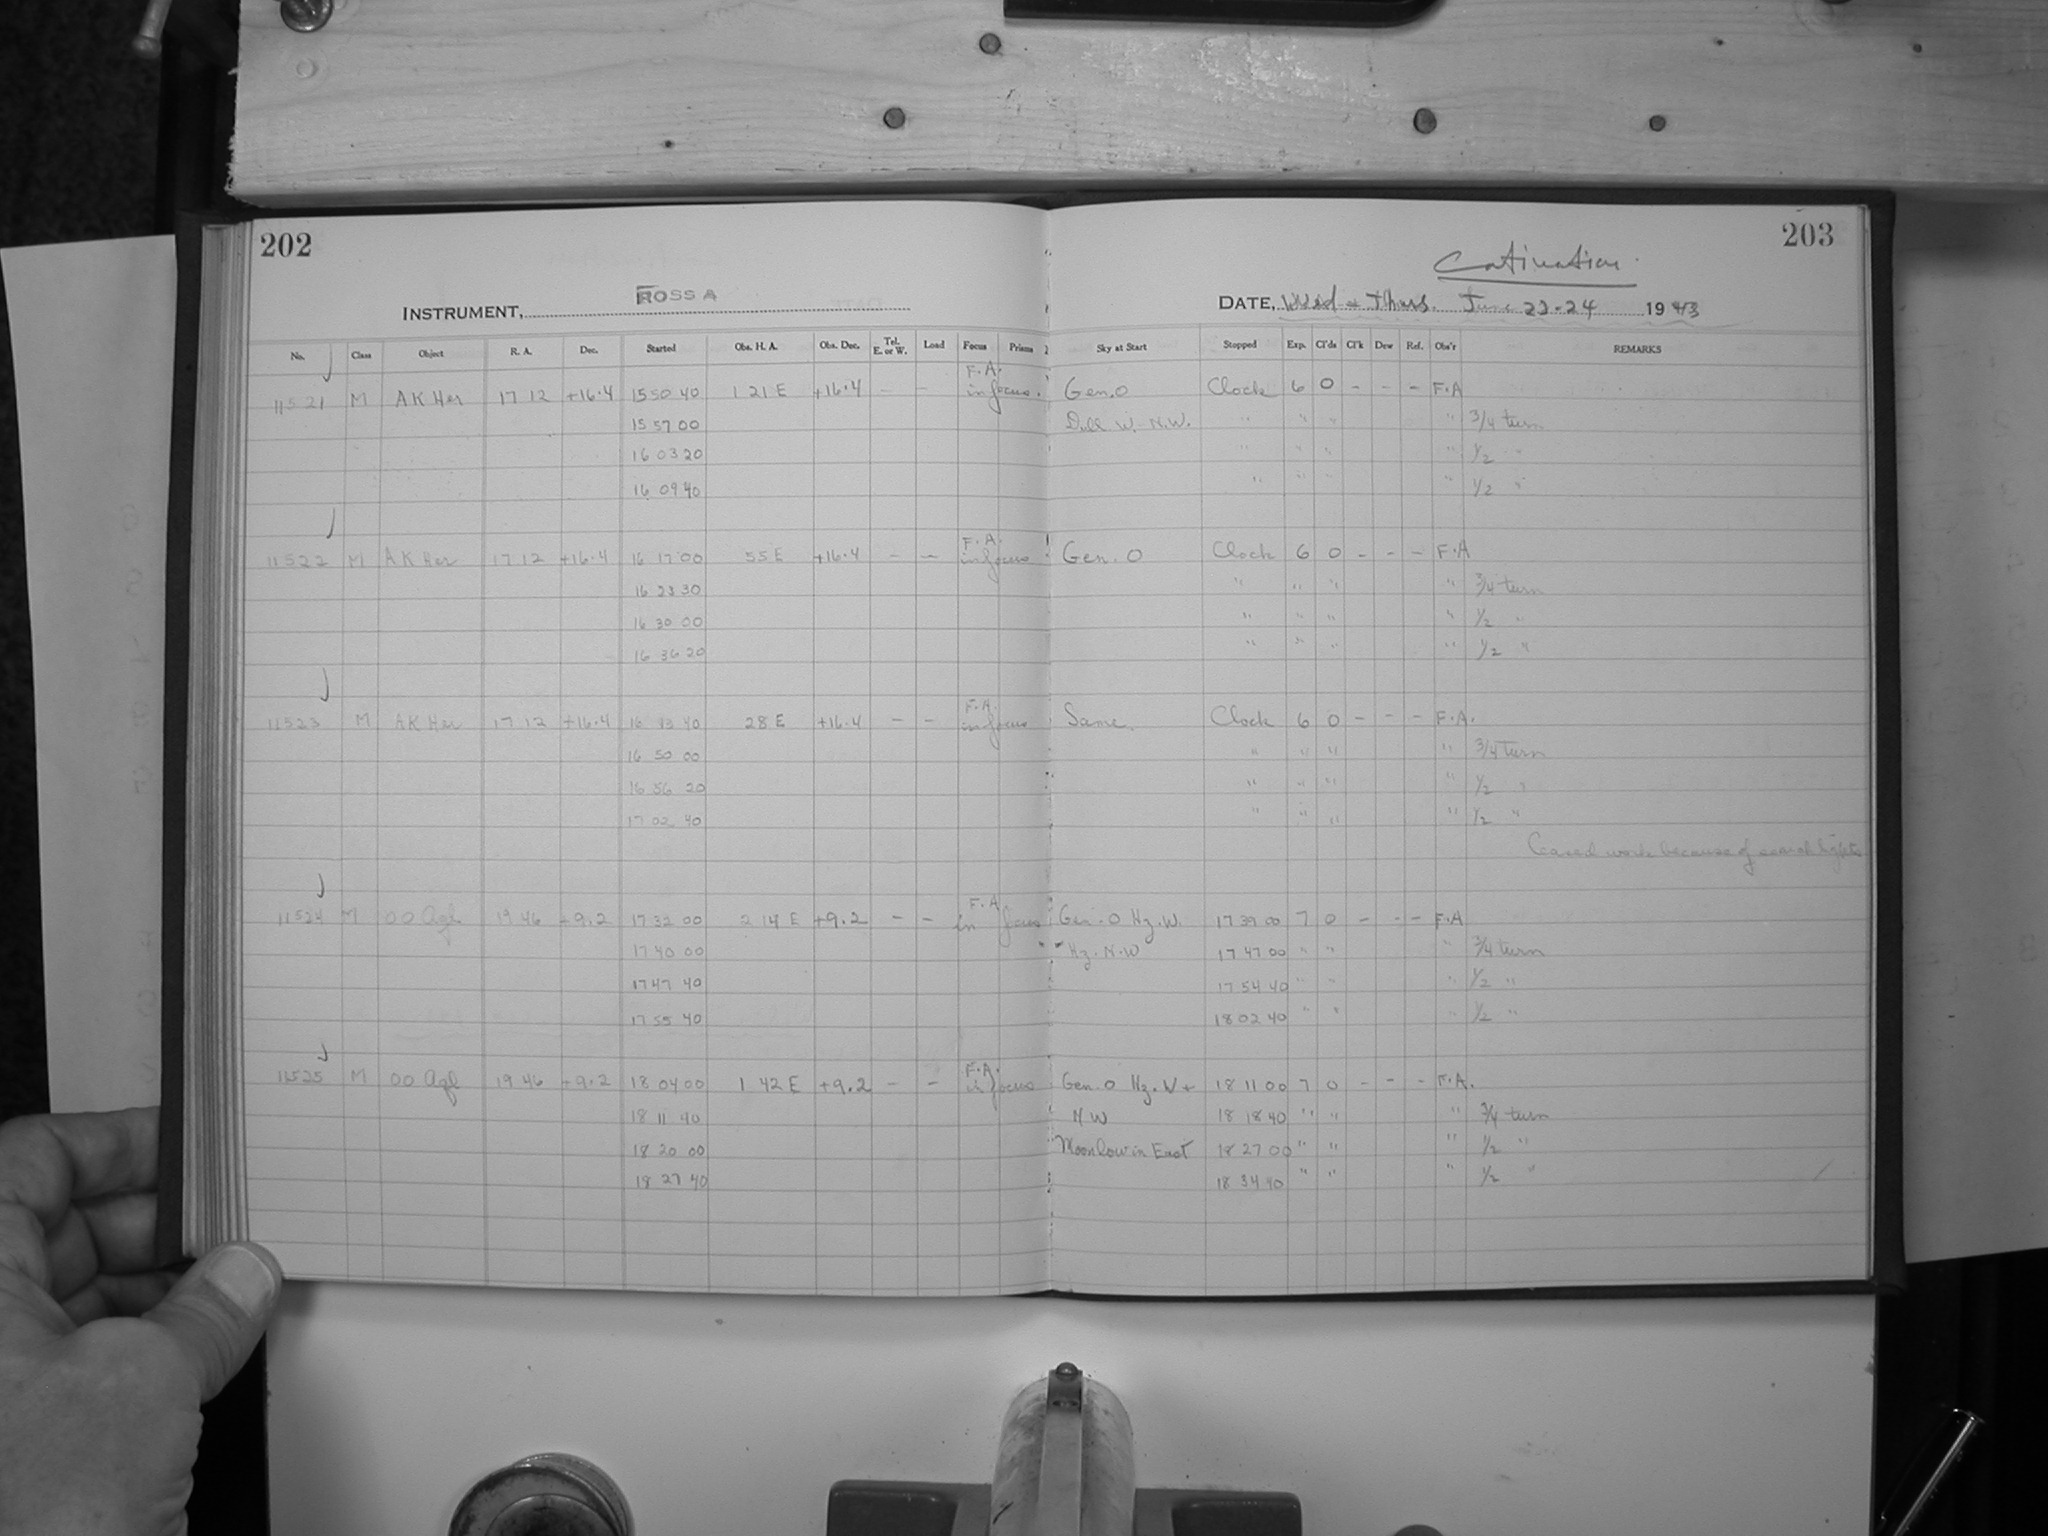 202
203
Cotinuation.
INSTRUMENT, ROSS A
DATE, Wed + Thurs. June 23-24 1943
No. Class Object R. A. Dec. Started Obs. H. A. Obs. Dec. Tel. E. or W. Load Focus Prisms Sky at Start Stopped Exp. Cl'ds Cl'k Dew Ref. Obs'r REMARKS
11521 M AK Her 17 12 +16.4 15 50 40 1 21 E +16.4 - - F.A. in focus. Gen. 0 Clock 6 0 - - - F.A
15 57 00 Dull W. N.W. " " " " 3/4 turn
16 03 20 " " " " 1/2 "
16 09 40 " " " " 1/2 "
11522 M AK Her 17 12 +16.4 16 17 00 55 E +16.4 - - F.A. in focus Gen. 0 Clock 6 0 - - - F.A
16 23 30 " " " " 3/4 turn
16 30 00 " " " " 1/2 "
16 36 20 " " " " 1/2 "
11523 M AK Her 17 12 +16.4 16 43 40 28 E +16.4 - - F.A. in focus Same. Clock 6 0 - - - F.A.
16 50 00 " " " " 3/4 turn
16 56 20 " " " " 1/2 "
17 02 40 " " " " 1/2 "
Ceased work because of search lights
11524 M OO Aql 19 46 +9.2 17 32 00 2 14 E +9.2 - - F.A in focus Gen. 0 Hz. W. 17 39 00 7 0 - - - F.A
17 40 00 " " Hz. N.W 17 47 00 " " " 3/4 turn
17 47 40 17 54 40 " " " 1/2 "
17 55 40 18 02 40 " " " 1/2 "
11525 M OO Aql 19 46 +9.2 18 04 00 1 42 E +9.2 - - F.A. in focus Gen. 0 Hz. W + 18 11 00 7 0 - - - F.A.
18 11 40 N W 18 18 40 " " " 3/4 turn
18 20 00 Moon low in East 18 27 00 " " " 1/2 "
18 27 40 18 34 40 " " " 1/2 "